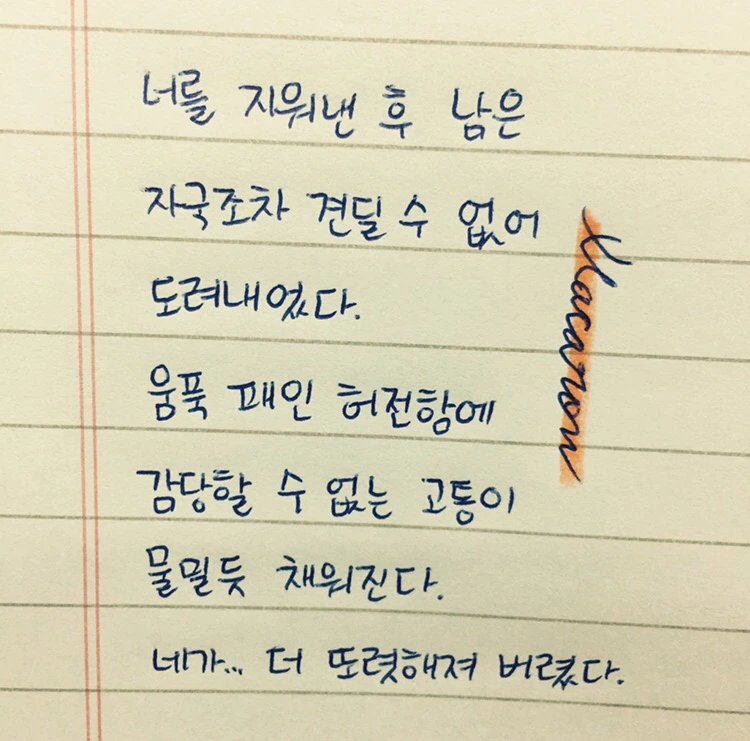 너를 지워낸 후 남은
자국조차 견딜 수 없어
도려내었다.
움푹 패인 허전함에
감당할 수 없는 고통이
물밀듯 채워진다.
네가... 더 또렷해져 버렸다.
Macaron